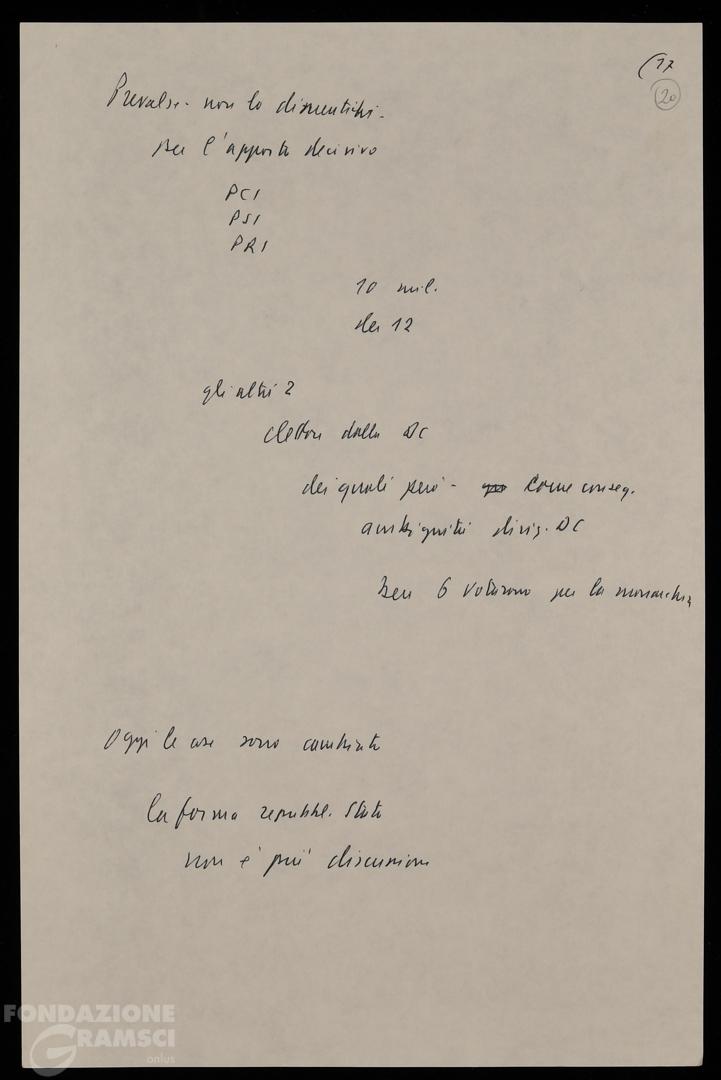 (17
20
Prevalse - non lo dimentichi -
per l'apporto decisivo
PCI
PSI
PRI
10 mil.
dei 12
gli altri 2
elettori della DC
dei quali però - come conseg.
ambiguità dirig. DC
Ben 6 votarono per la monarchia
Oggi le cose sono cambiate
la forma repubbl. Stato
non è più discussione
FONDAZIONE
GRAMSCI
onlus